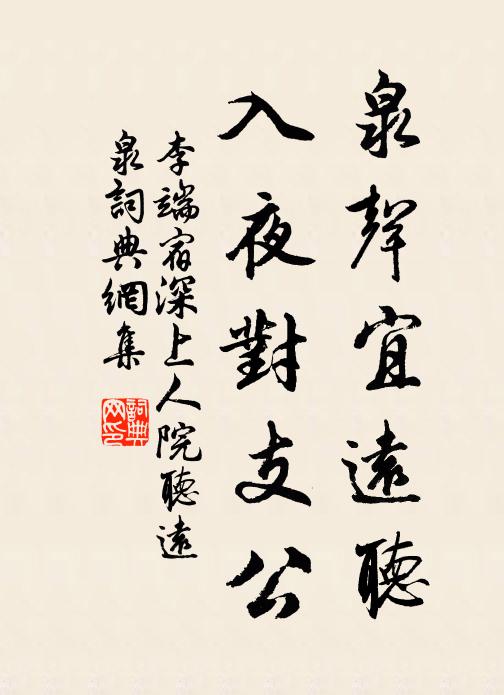 泉聲宜遠聽
入夜對支公
李端宿深上人院聽遠
泉詞典網集
詞典
网印